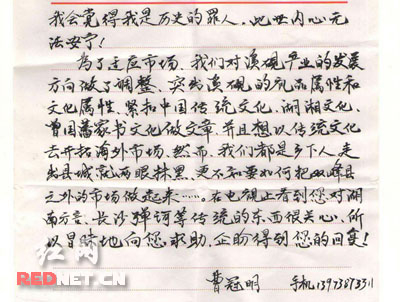 我会觉得我是历史的罪人，此世内心无
法安宁！
为了适应市场，我们对溪砚产业的发展
方向做了调整、突残溪砚的礼品属性和
文化属性、紧扣中国传统文化、湖湘文化、
曾国藩家书文化做文章、并且想以传统文化
去开拓海外市场、然而，我们都是乡下人走
出县城就两眼抹黑、更不知要如何把双峰县
之外的市场做起来……。在电视上看到您对湖
南方言、长沙弹词等传统的东西很关心，所
以冒昧地向您求助、企盼得到您的回复！
曹冠明 手机13973873311
红网
REDNET.CN